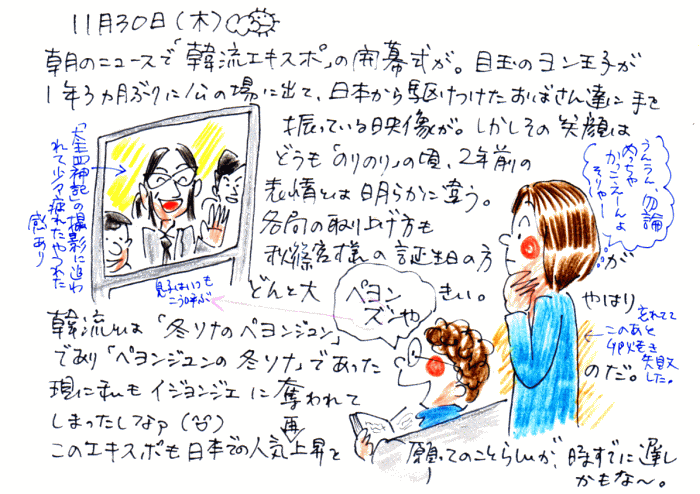 11月30日(木)
朝のニュースで「韓流エキスポ」の開幕式が。目玉のヨン王子が
1年3ヵ月ぶりに公の場に出て、日本から駆けつけたおばさん達に手を
振っている映像が。しかしその笑顔は
どうも「のりのり」の頃、2年前の
表情とは明らかに違う。
各局の取り上げ方も
秋篠宮様の誕生日の方が
どんと大きい。
やはり
韓流とは「冬ソナのペヨンジュン」
であり「ペヨンジュンの冬ソナ」であったのだ。
現に私もイジョンジェに奪われて
しまったしなァ
このエキスポも日本での人気再上昇を願ってのことらしいが、時すでに遅し
かもな〜。
「太王四神記」の撮影に追わ
れて少々疲れたやつれた
感あり
息子はいつも
こう呼ぶ
ペヨン
ズンや
うんうん、勿論
めっちゃ
かっこえーんよ
そりゃー
忘れてて
このあと
卵焼き
失敗
した。